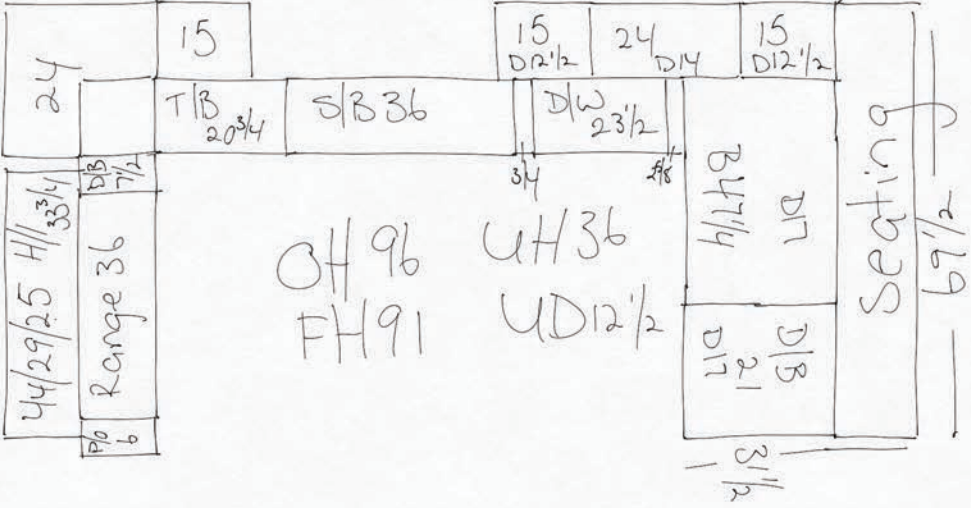 24
15
15
D12 1/2
24
D14
15
D12 1/2
T/B
20 3/4
S/B 36
D/W
23 1/2
3/4
D/B
7 1/2
44/29/25 H//33 3/4
Range 36
P/O
6
OH 96
FH 91
UH 36
UD 12 1/2
B 47 1/4
D17
D/B
21
D17
Seating
69 1/2
31 1/2